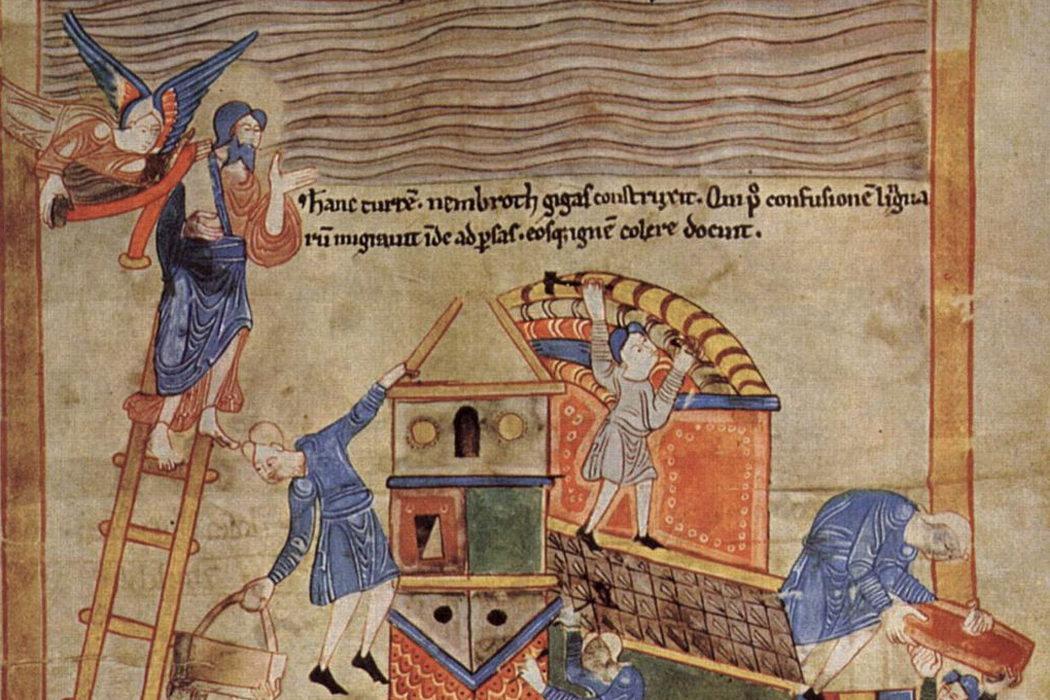 hanc turrē. nembroth gigas construxit. Qui p̊ confusionē ligua
rū migrauit īde ad ꝑsas. eosq; ignē colere docuit.